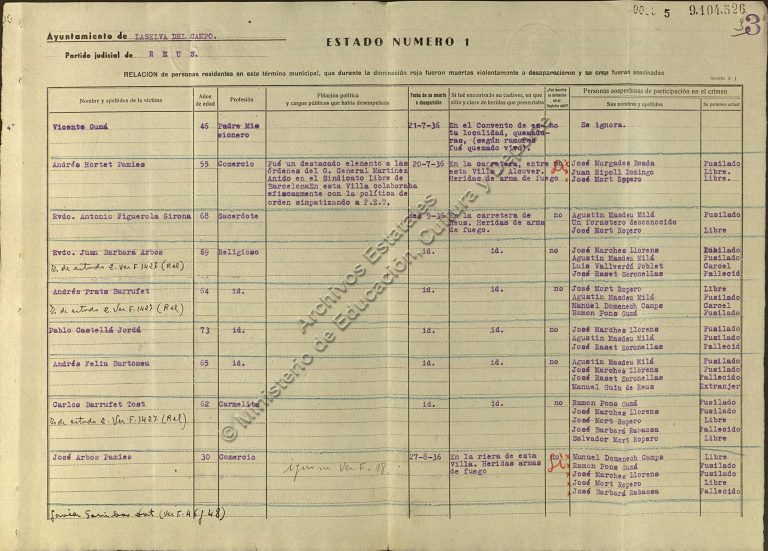 5 9.104.526
3
Ayuntamiento de LASELVA DEL CAMPO.
Partido judicial de R E U S.
ESTADO NUMERO 1
RELACION de personas residentes en este término municipal, que durante la dominación roja fueron muertas violentamente o desaparecieron y se cree fueran asesinadas
Nombre y apellidos de la víctima
Años de edad
Profesión
Filiación política
y cargos públicos que había desempeñado
Fecha de su muerte
o desaparición
Si fué encontrado su cadáver, en que
sitio y clase de heridas que presentaba
Personas sospechosas de participación en el crimen
Sus nombres y apellidos
Su paradero actual
Vicente Gumá 46 Padre Mis
sionero
21-7-36 En el Convento de es-
ta localidad, quemadu-
ras, (según rumores
fué quemado vivo).
no Se ignora.
Andrés Hortet Pamies 55 Comercio
Fué un destacado elemento a las
órdenes del G. General Martínez
Anido en el Sindicato Libre de
BarcelonaEn esta Villa colaboraba
eficazmente con la política de
orden simpatizando a F.E.T,
20-7-36 En la carretera, entre
esta Villa y Alcover.
Heridas de arma de fuego
no
José Murgades Boada Fusilado
Juan Ripoll Domingo Libre.
José Mort Ropero Libre
Rvdo. Antonio Figuerola Girona 68 Sacerdote
9-36 En la carretera de
Reus. Heridas de arma
de fuego.
no
Agustin Masdeu Milá Fusilado
Un forastero desconocido
José Mort Ropero Libre
Rvdo. Juan Barbara Arbos 69 Religioso id. id. no
D. de estado 2. Ver F. 1427 (Rel)
José Marches Llorens Fusilado
Agustin Masdeu Milá Fusilado
Luis Vallverdé Poblet Carcel
José Raset Soronellas Fallecid
Andrés Prats Barrufet 64 id. id. id. no
D. de estado 2. Ver F. 1427 (Rel)
José Mort Ropero Libre
Agustin Masdeu Milá Fusilado
Manuel Domenech Camps Carcel
Ramon Pons Gumá Fusilado
Pablo Castellá Jordá 73 id. id. id. no
José Marches Llorens Fusilado
Agustin Masdeu Milá Fusilado
José Raset Soronellas Fallecid
Andrés Feliu Bartomeu 65 id. id. id. no
Agustin Masdeu Milá Fusilado
José Marches Llorens Fusilado
José Raset Soronellas Fallecido
Manuel Guiu de Reus Extranjer
Carlos Barrufet Tost 62 Carmelita id. id. no
D. de estado 2. Ver F. 1427 (Rel)
Ramon Pons Gumá Fusilado
José Marches Llorens Fusilado
José Mort Ropero Libre
José Barbará Rabassa Fallecido
Salvador Mort Ropero Libre
José Arbos Pamies 30 Comercio
27-8-36 En la riera de esta
Villa. Heridas armas
de fuego
no
Manuel Domenech Camps Libre
Ramon Pons Gumá Fusilado
José Marches Llorens Fusilado
José Mort Ropero Libre
José Barbará Rabassa Fallecido
(Ver F. 46 y 48)
© Ministerio de Educación, Cultura y Deporte
Archivos Estatales